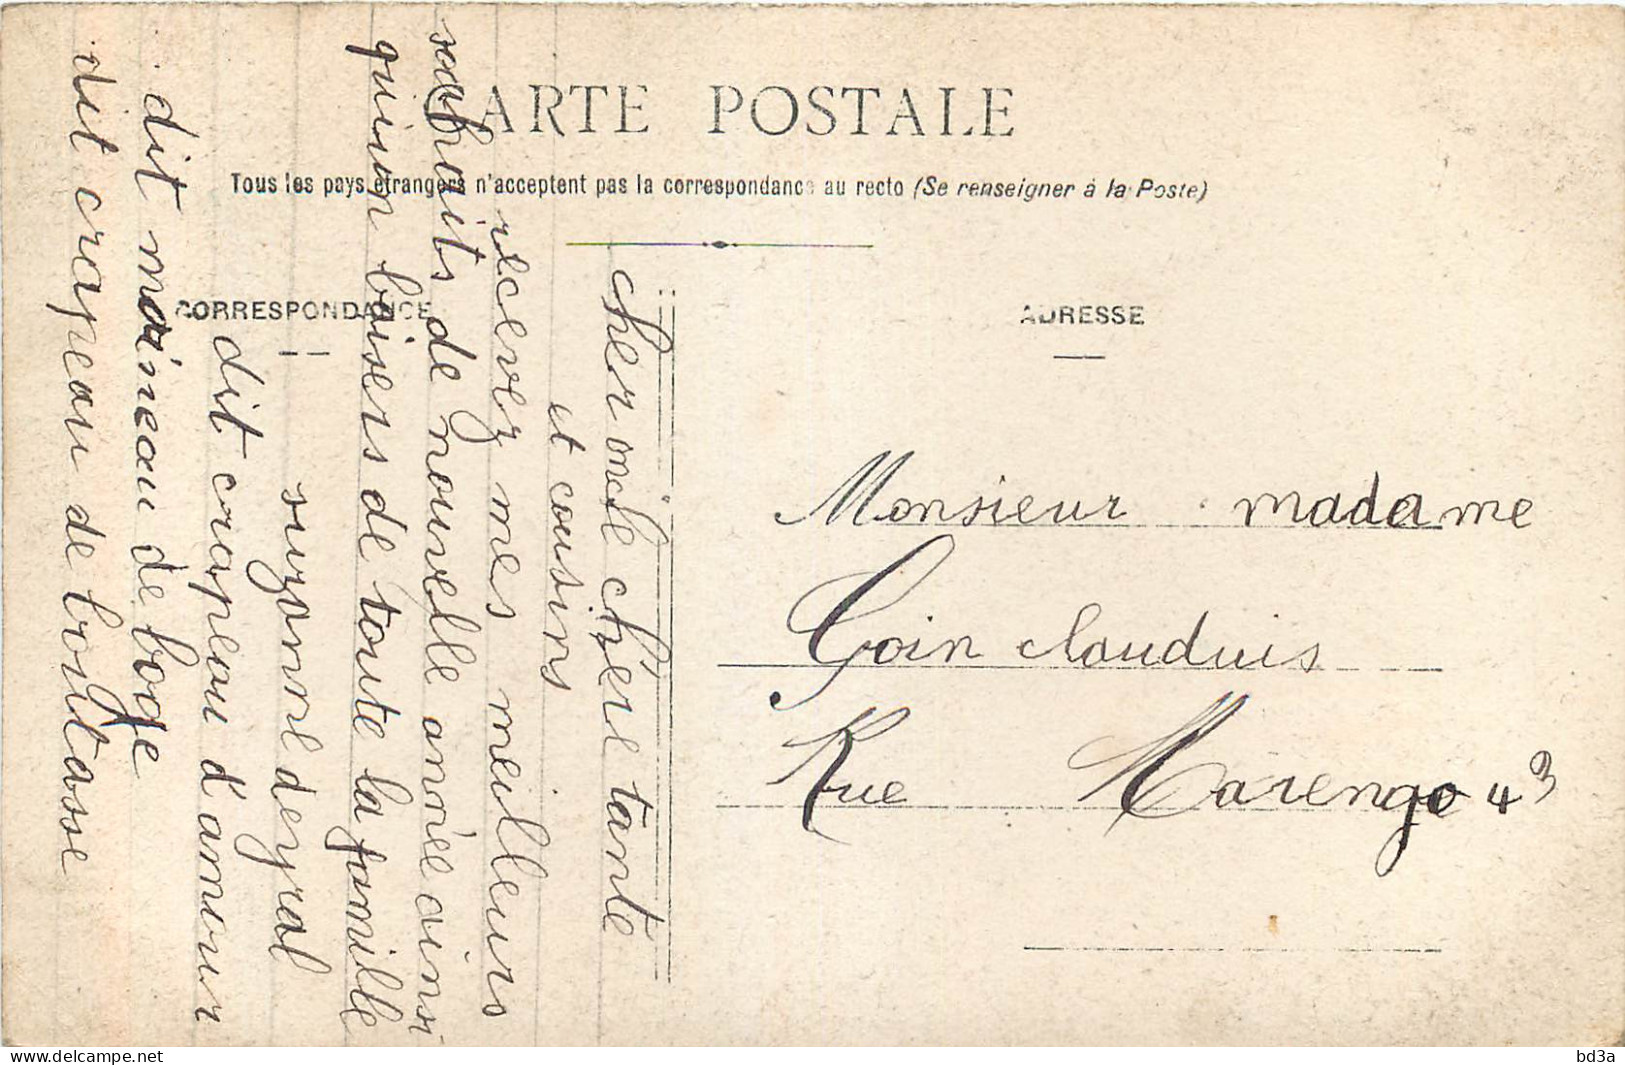 CARTE POSTALE
Tous les pays étrangers n'acceptent pas la correspondance au recto (Se renseigner à la Poste)
CORRESPONDANCE
ADRESSE
cher oncle chere tante
et cousins
recevez mes meilleurs
souhaits de nouvelle année ainsi
qu'un boisers de toute la famille
suzanne deyral
dit crapeau d'amour
dit moineau de boge
dit crapeau de
Monsieur madame
Goin claudius
Rue Marengo 43
delcampe.net
bd3a